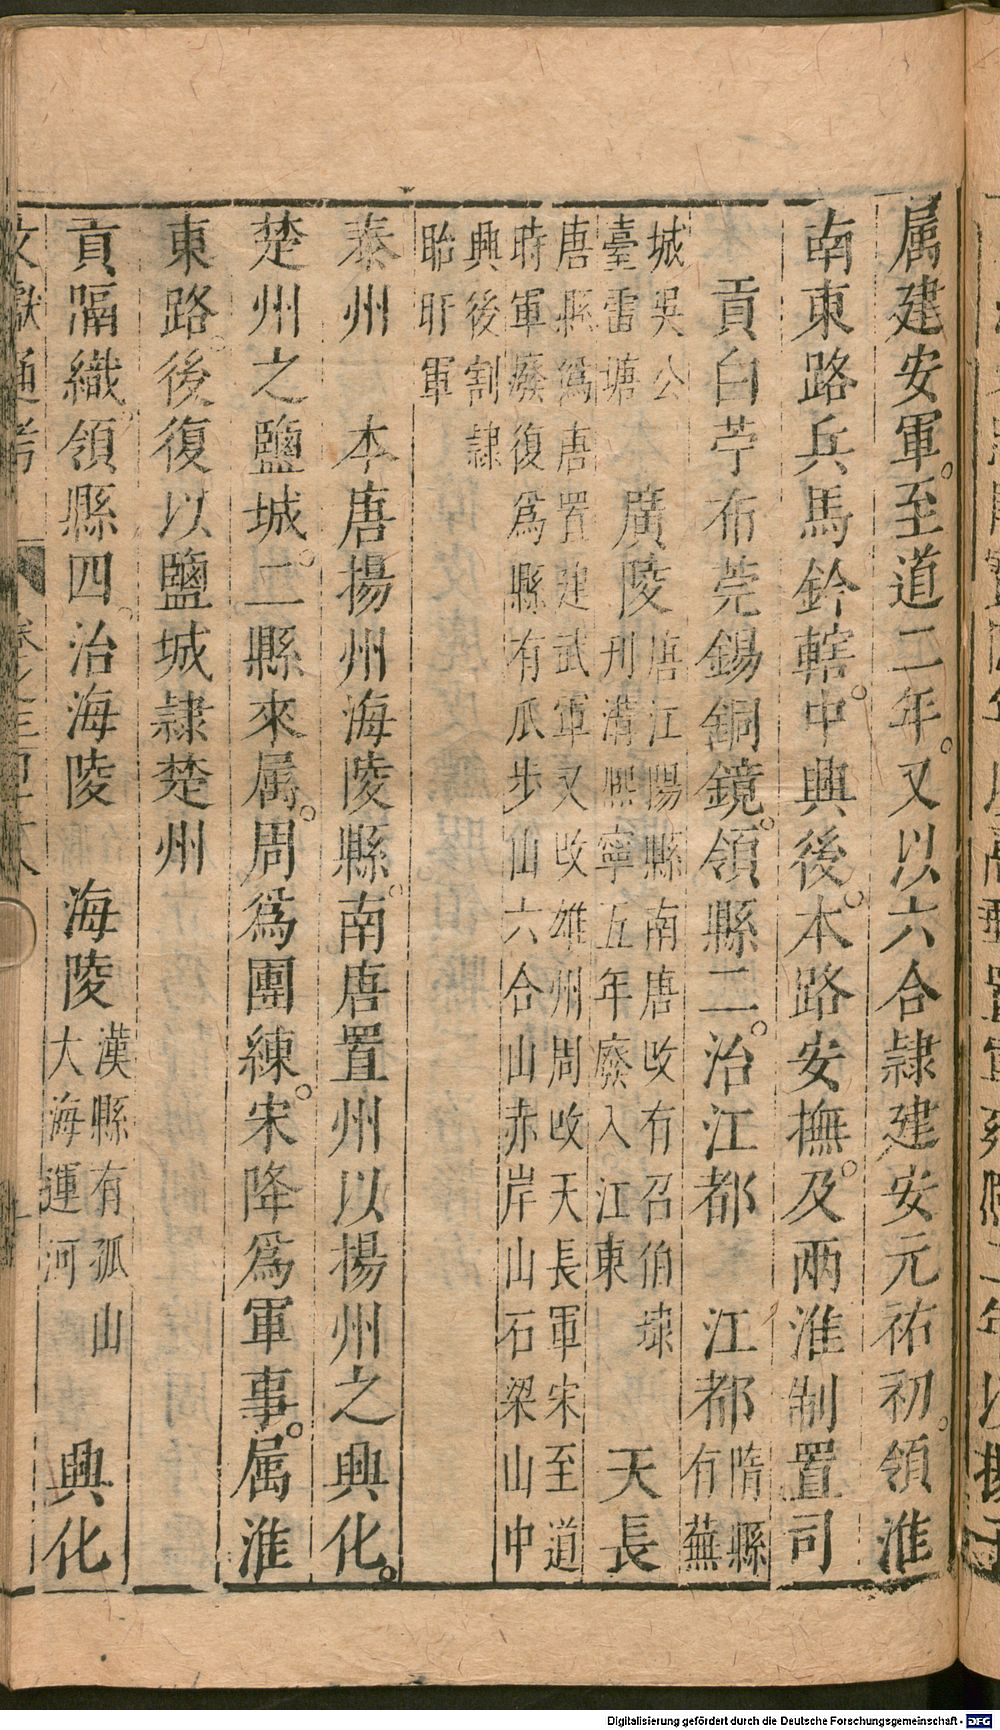 属建安軍。至道二年。又以六合隷建安元祐初。領淮
南東路兵馬鈐轄。中興後。本路安撫。及兩淮制置司
貢白苧布莞錫銅鏡。領縣二。治江都 江都 隋縣有蕪
城吳公臺雷塘 廣陵 唐江陽縣南唐改有召伯埭刋溝熈寧五年廢入江東 天長
唐縣爲唐置建武軍又改雄州周改天長軍宋至道
時軍廢復爲縣有瓜步山六合山赤岸山石梁山中
興後割隷
盱眙軍
泰州 本唐揚州海陵縣。南唐置州以揚州之興化。
楚州之鹽城。二縣來属。周爲團練。宋降爲軍事。属淮
東路。後復以鹽城隷楚州
貢隔織。領縣四。治海陵 海陵 漢縣有孤山大海運河 興化
文獻通考
Digitalisierung gefördert durch die Deutsche Forschungsgemeinschaft - DFG